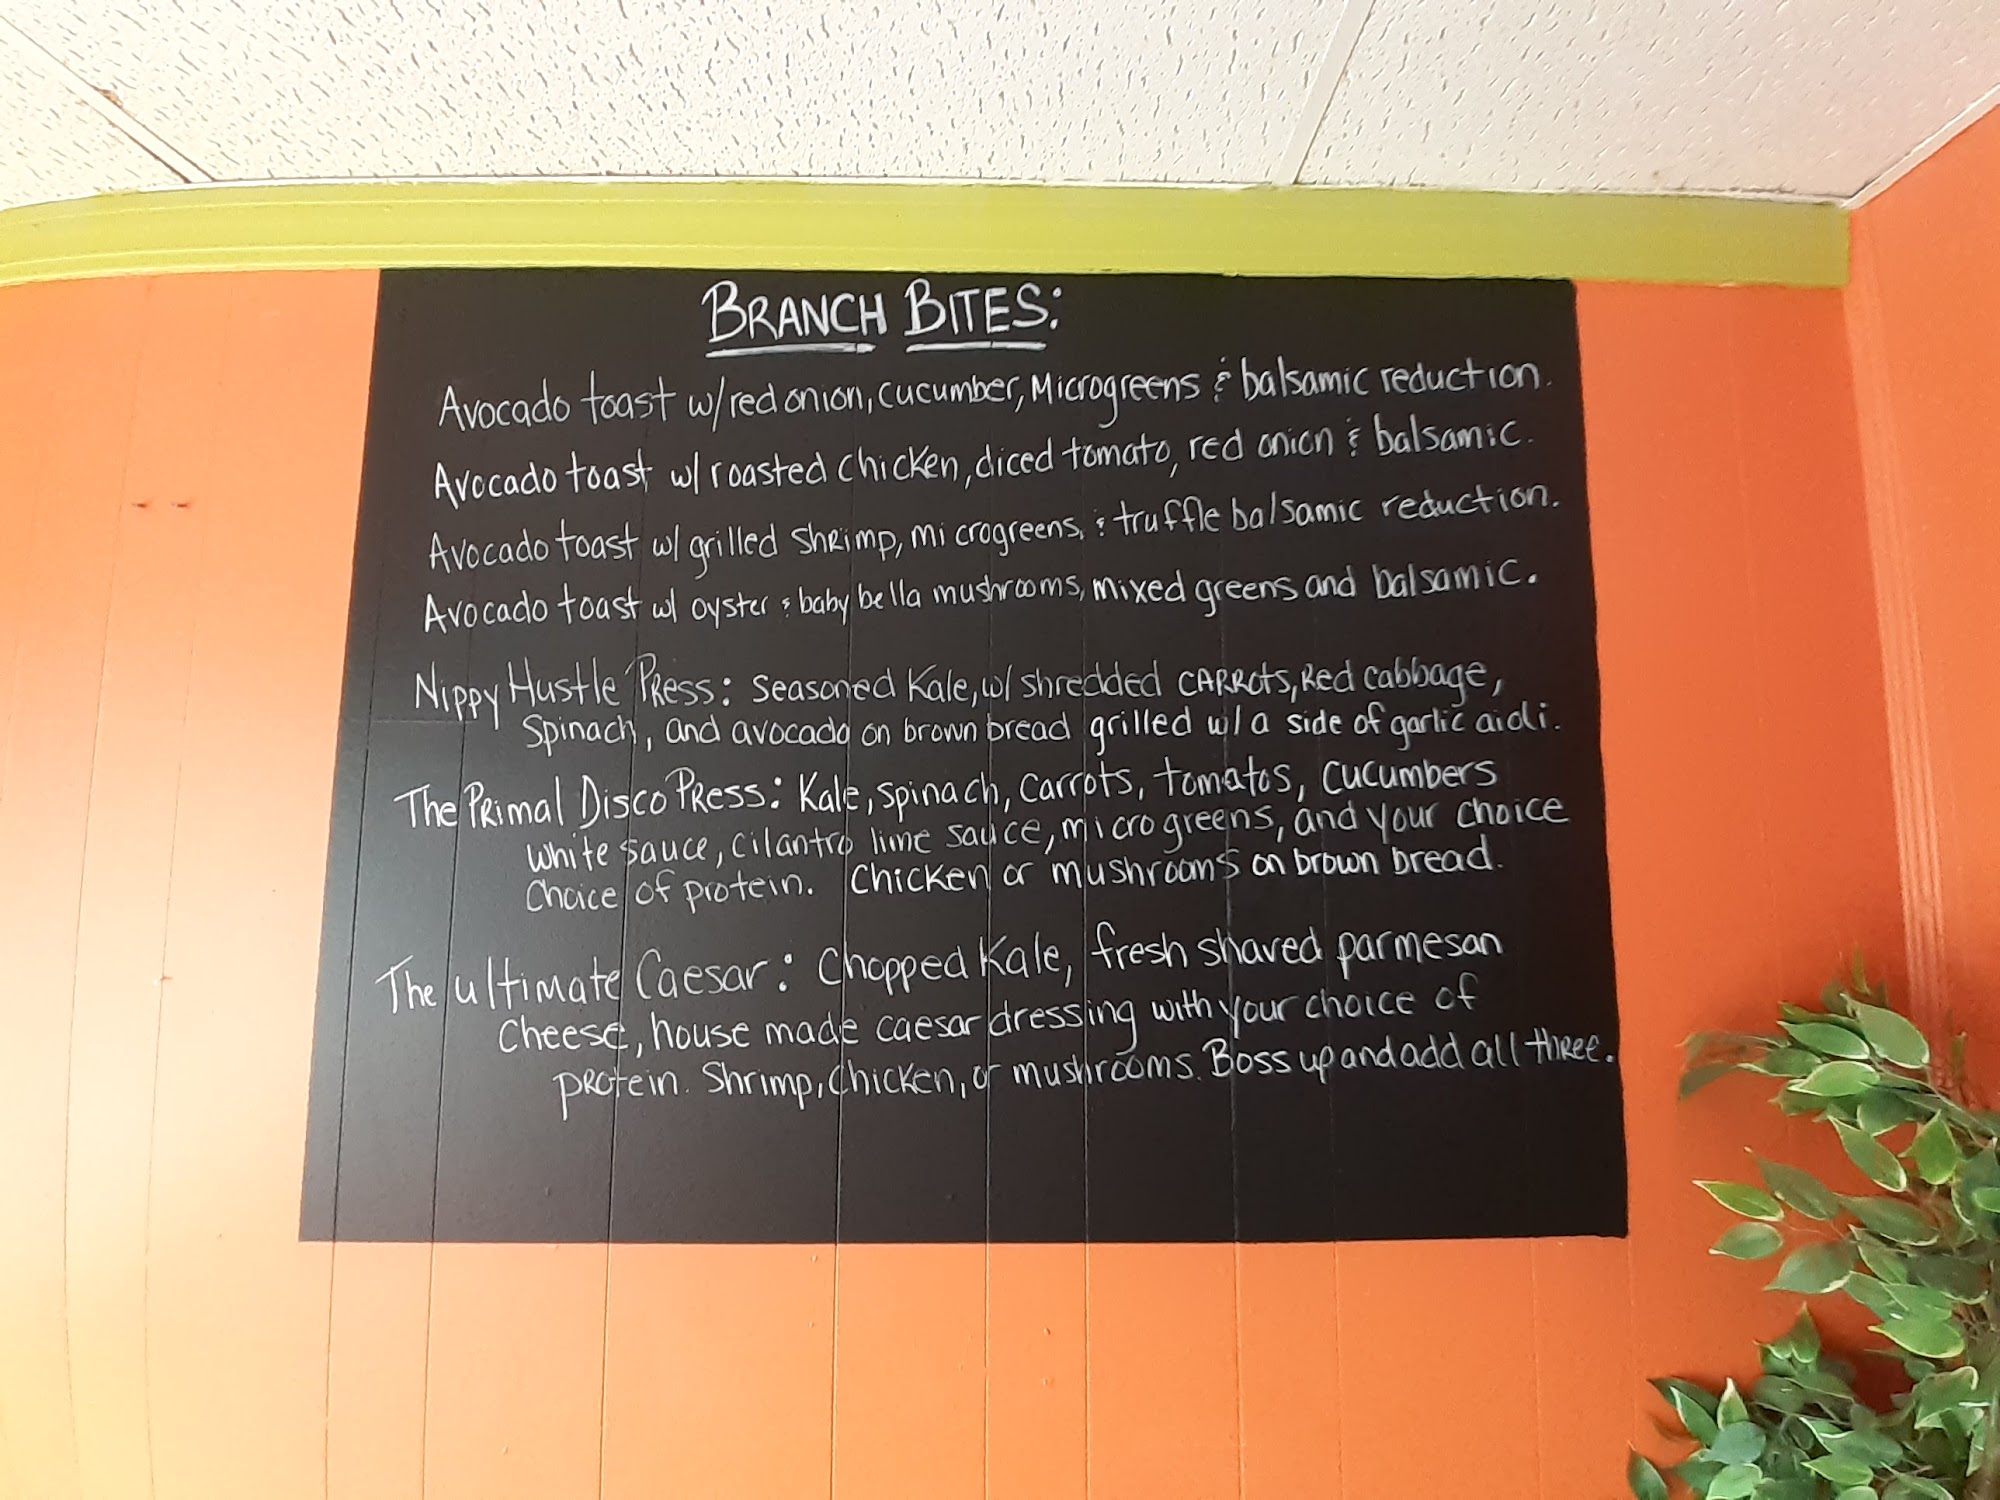 BRANCH BITES:
Avocado toast w/ red onion, cucumber, Microgreens & balsamic reduction.
Avocado toast w/ roasted chicken, diced tomato, red onion & balsamic.
Avocado toast w/ grilled shrimp, microgreens, & truffle balsamic reduction.
Avocado toast w/ oyster & baby bella mushrooms, mixed greens and balsamic.
Nippy Hustle Press: seasoned Kale, w/ shredded CARROTS, Red cabbage,
Spinach, and avocado on brown bread grilled w/ a side of garlic aioli.
The Primal Disco Press: Kale, spinach, carrots, tomatos, cucumbers
white sauce, cilantro lime sauce, microgreens, and your choice
choice of protein. Chicken or mushrooms on brown bread.
The ultimate Caesar: Chopped Kale, fresh shaved parmesan
cheese, house made caesar dressing with your choice of
protein. Shrimp, chicken, or mushrooms. Boss up and add all three.